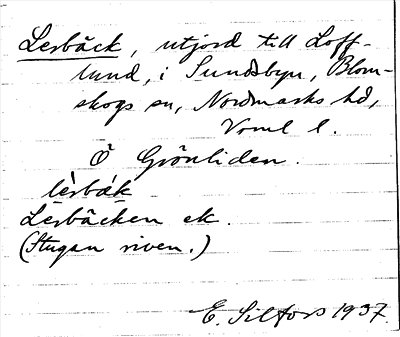 Lerbäck, utjord till Loff-
lund, i Sundsbyn, Blom-
skogs sn, Nordmarks hd,
Vrml l.
Ö Grönliden.
lè̀rbák
Lerbäcken ek.
(Stugan riven.)
E. Silfors 1937.